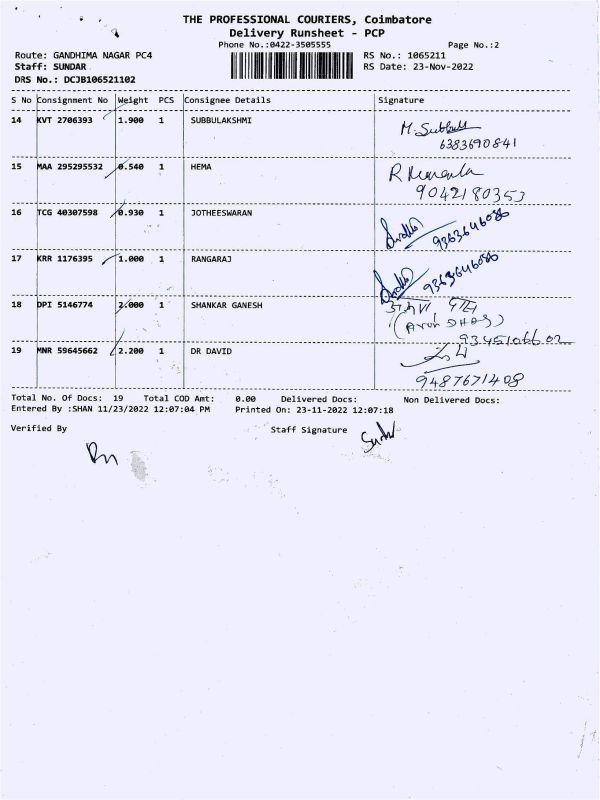 THE PROFESSIONAL COURIERS, Coimbatore
Delivery Runsheet - PCP
Phone No.:0422-3505555 Page No.:2
Route: GANDHIMA NAGAR PC4 RS No.: 1065211
Staff: SUNDAR RS Date: 23-Nov-2022
DRS No.: DCJB106521102
S No Consignment No Weight PCS Consignee Details Signature
14 KVT 2706393 1.900 1 SUBBULAKSHMI M. Subbu
6383690841
15 MAA 295295532 0.540 1 HEMA R
9042180353
16 TCG 40307598 0.930 1 JOTHEESWARAN 9363646086
17 KRR 1176395 1.000 1 RANGARAJ 9363646086
18 DPI 5146774 2.000 1 SHANKAR GANESH
(Arun
9345106602
19 MNR 59645662 2.200 1 DR DAVID
9487671408
Total No. Of Docs: 19 Total COD Amt: 0.00 Delivered Docs: Non Delivered Docs:
Entered By :SHAN 11/23/2022 12:07:04 PM Printed On: 23-11-2022 12:07:18
Verified By Staff Signature